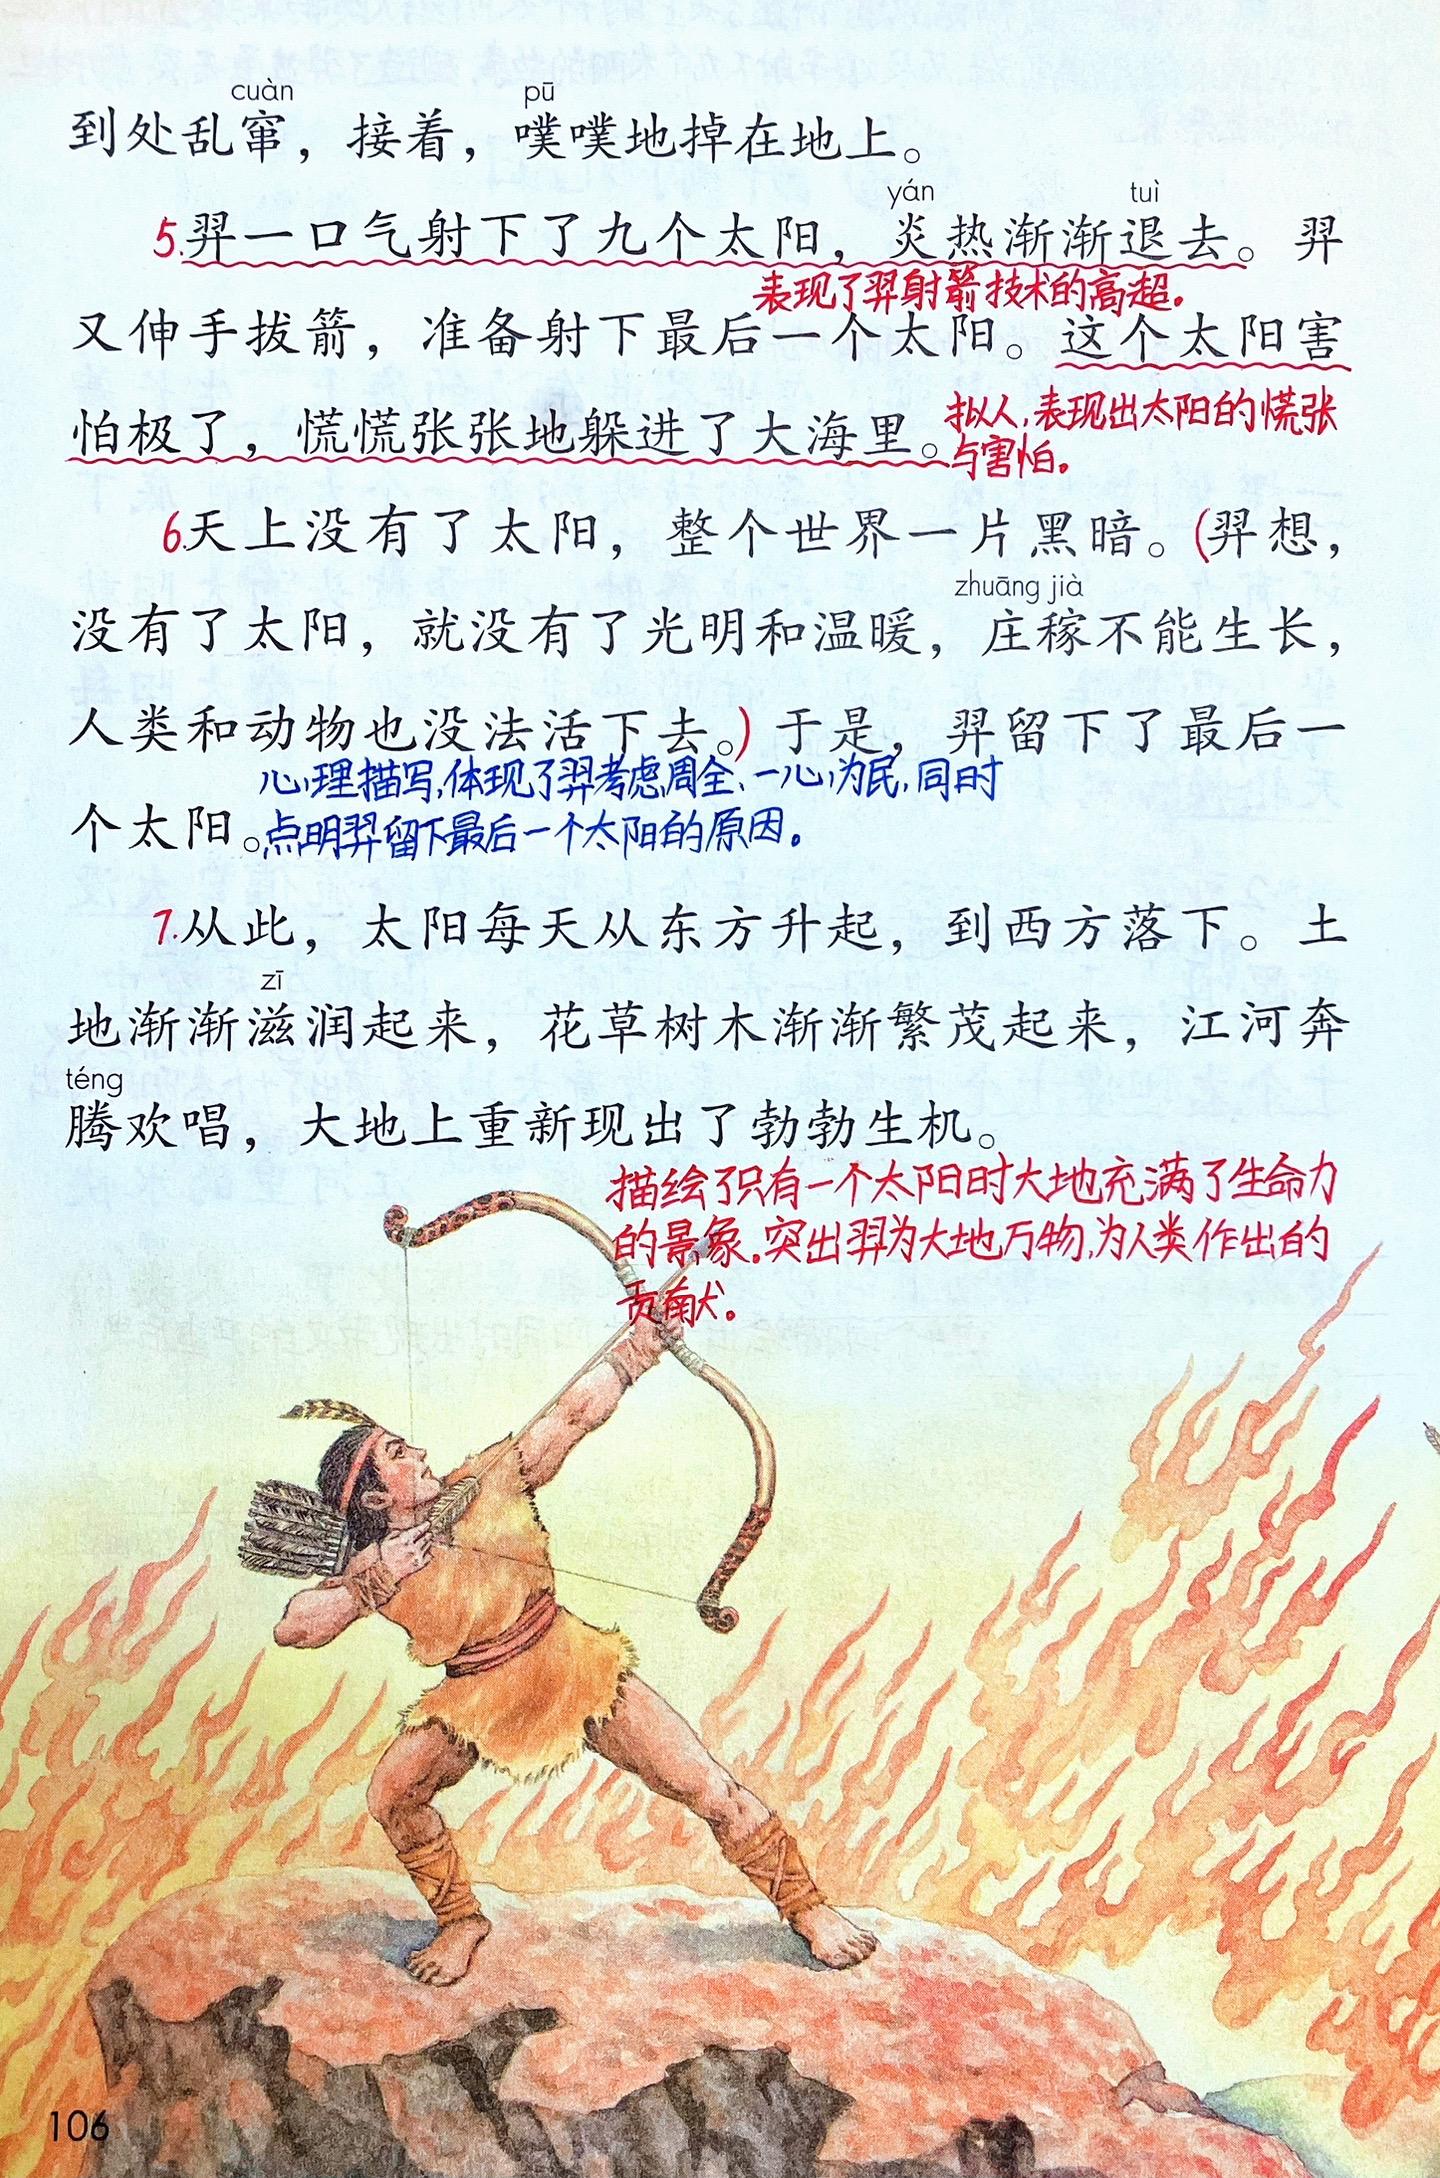 cuàn pū
到处乱窜，接着，噗噗地掉在地上。
yán tuì
5.羿一口气射下了九个太阳，炎热渐渐退去。羿
表现了羿射箭技术的高超。
又伸手拔箭，准备射下最后一个太阳。这个太阳害
怕极了，慌慌张张地躲进了大海里。
拟人，表现出太阳的慌张
与害怕。
6.天上没有了太阳，整个世界一片黑暗。(羿想，
zhuāng jià
没有了太阳，就没有了光明和温暖，庄稼不能生长，
人类和动物也没法活下去。)于是，羿留下了最后一
心理描写，体现了羿考虑周全、一心为民，同时
个太阳。
点明羿留下最后一个太阳的原因。
7.从此，太阳每天从东方升起，到西方落下。土
zī
地渐渐滋润起来，花草树木渐渐繁茂起来，江河奔
téng
腾欢唱，大地上重新现出了勃勃生机。
描绘了只有一个太阳时大地充满了生命力
的景象。突出羿为大地万物，为人类作出的
贡献。
106